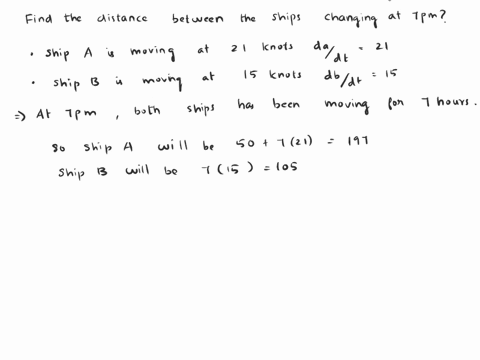 Find the distance between the ships changing at 7pm?
• Ship A is moving at 21 knots da/dt = 21
• Ship B is moving at 15 knots db/dt = 15
⇒ At 7pm, both ships has been moving for 7 hours.
So ship A will be 50 + 7(21) = 197
Ship B will be 7(15) = 105